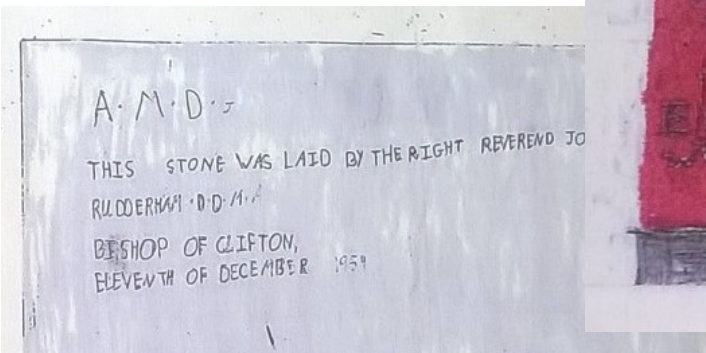 A·M·D·J
THIS STONE WAS LAID BY THE RIGHT REVEREND JO
RUDDERHAM·D·D·M·A
BISHOP OF CLIFTON,
ELEVENTH OF DECEMBER 1959